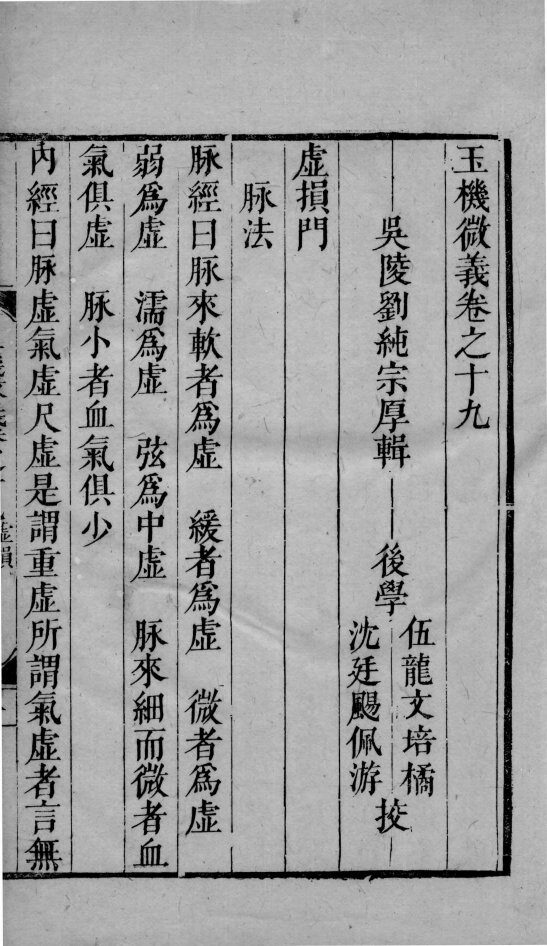 玉機微義卷之十九
吳陵劉純宗厚輯　後學　伍龍文培橘　挍
沈廷颺佩游
虛損門
脉法
脉經曰脉來軟者爲虛　緩者爲虛　微者爲虛
弱爲虛　濡爲虛　弦爲中虛　脉來細而微者血
氣俱虛　脉小者血氣俱少
內經曰脉虛氣虛尺虛是謂重虛所謂氣虛者言無